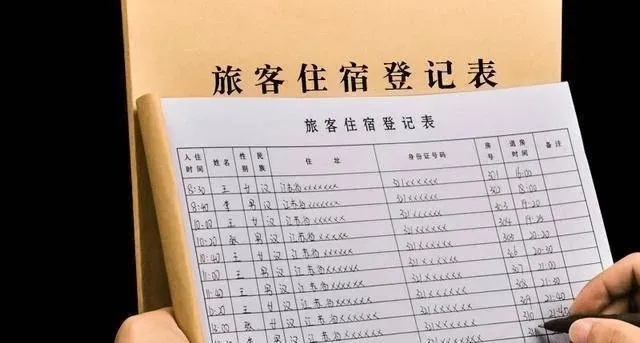 旅客住宿登记表
旅客住宿登记表
入住时间 姓名 性别 民族 住址 身份证号码 房号 退房时间 备注
8:30 王 女 汉 江苏省xxxxxx 321xxxxxx 301 16:00
8:40 李 男 汉 江苏省xxxxxx 321xxxxxx 302 18:00
10:00 王 女 汉 江苏省xxxxxx 321xxxxxx 303 19:20
10:20 张 男 汉 江苏省xxxxxx 321xxxxxx 304
10:40 王 男 汉 江苏省xxxxxx 321xxxxxx 305 20:20
11:00 王 女 汉 江苏省xxxxxx 321xxxxxx 306 20:30
11:40 王 男 汉 江苏省xxxxxx 321xxxxxx 307 21:00
王 女 汉 江苏省xxxxxx 321xxxxxx 21:30
张 女 汉 江苏省xxxxxx 321xxxxxx 309 21:40
男 汉 江苏省xxxxxx 321xxxxxx 310 21:40